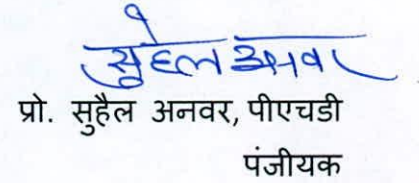 सुहैल अनवर
प्रो. सुहैल अनवर, पीएचडी
पंजीयक